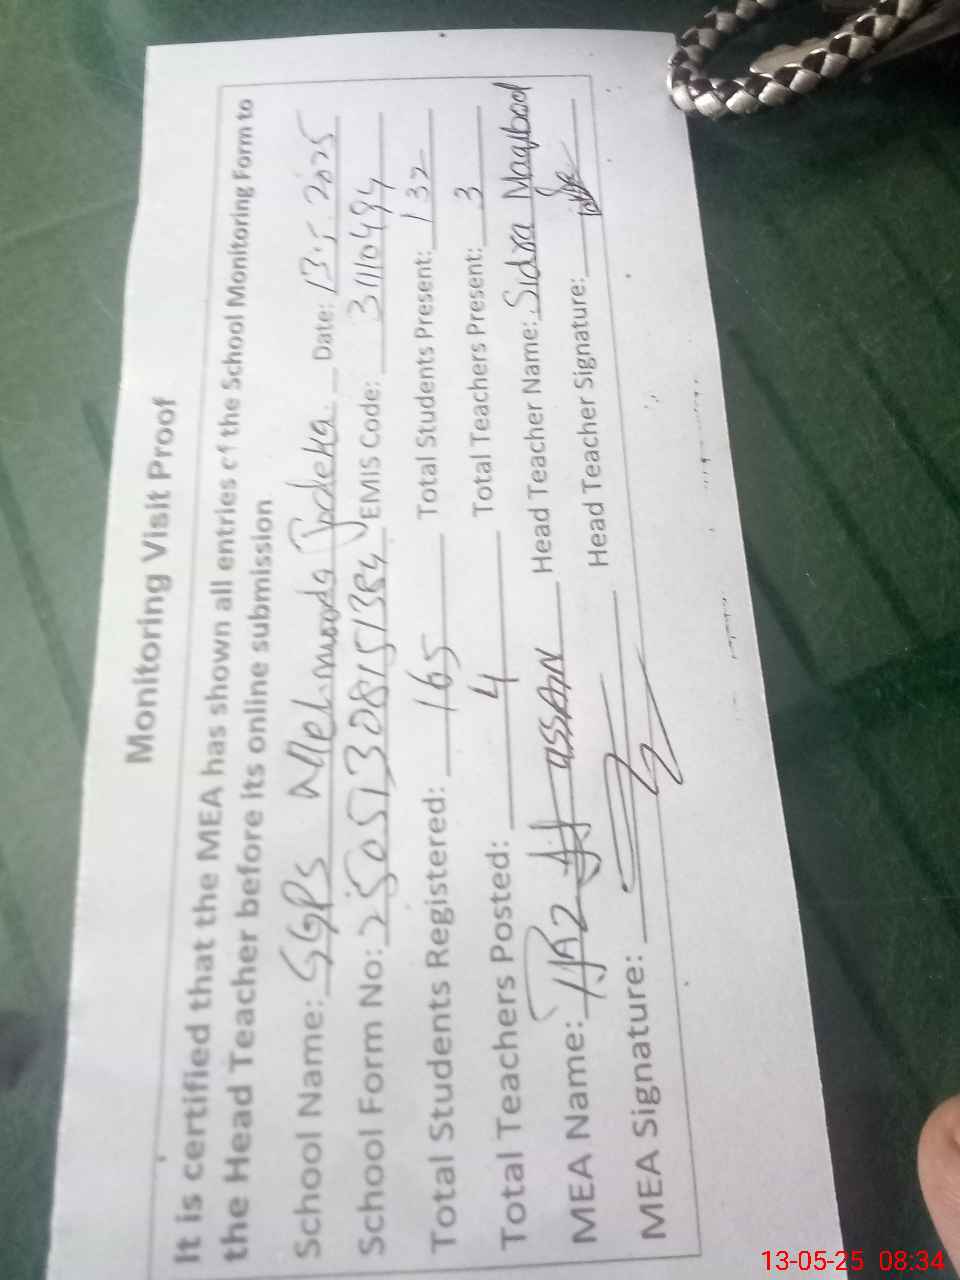 Monitoring Visit Proof
It is certified that the MEA has shown all entries of the School Monitoring Form to
the Head Teacher before its online submission
School Name: GGPS Mehmooda Date: 13.5.2025
School Form No: 25051308151384 EMIS Code: 31110494
Total Students Registered: 165 Total Students Present: 132
Total Teachers Posted: 4 Total Teachers Present: 3
MEA Name: Head Teacher Name: Sidra Maqbool
MEA Signature: Head Teacher Signature:
13-05-25 08:34